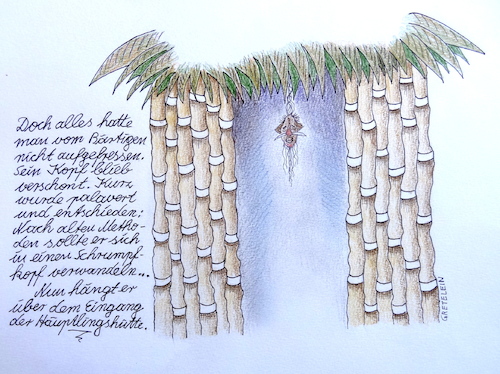 Doch alles hatte
man vom Bärtigen
nicht aufgefressen.
Sein Kopf blieb
verschont. Kurz
wurde palavert
und entschieden:
Nach alten Metho-
den sollte er sich
in einen Schrumpf-
kopf verwandeln...
Nun hängt er
über dem Eingang
der Häuptlingshütte.
GRETELEIN